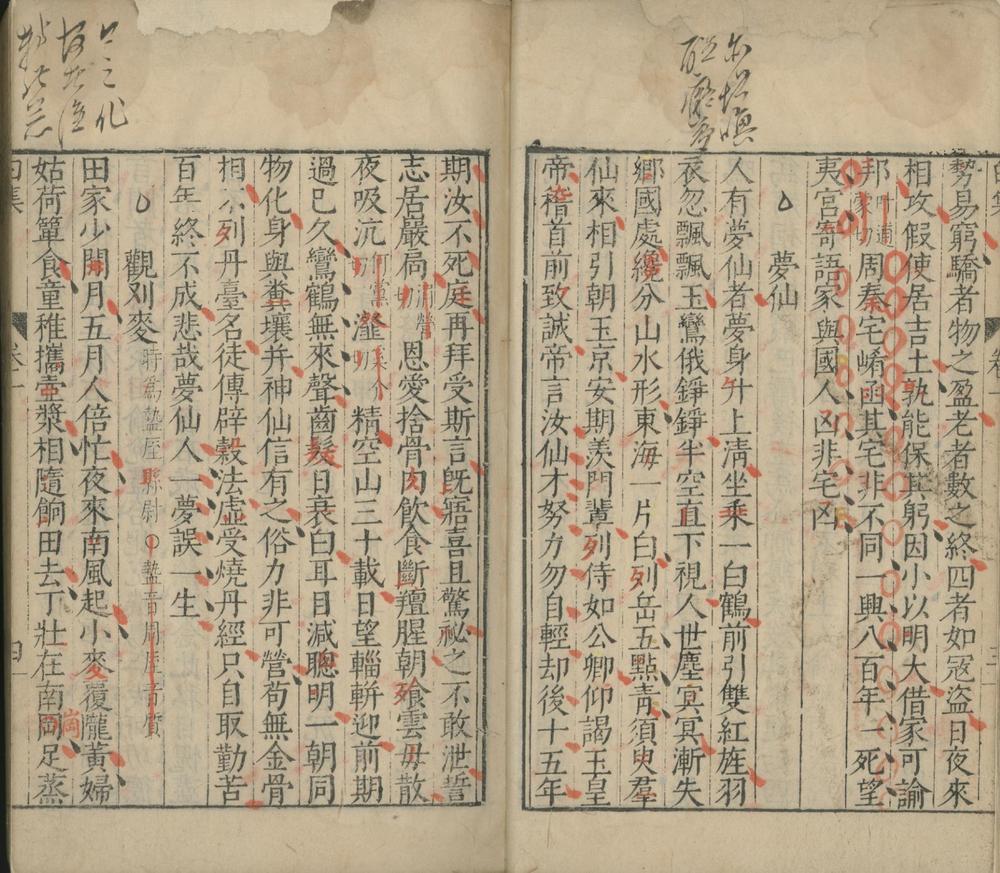 勢易窮驕者物之盈老者數之終四者如冦盜日夜來
相攻假使居吉土孰能保其躬因小以明大借家可諭
邦叶逋蒙切周秦宅崤函其宅非不同一興八百年一死望
夷宮寄語家與國人凶非宅凶
夢仙
人有夢仙者夢身升上淸坐乘一白鶴前引雙紅旌羽
衣忽飄飄玉鸞俄錚錚半空直下視人世塵冥冥漸失
鄉國處纔分山水形東海一片白列岳五點靑須臾羣
仙來相引朝玉京安期羨門輩列侍如公卿仰謁玉皇
帝稽首前致誠帝言汝仙才努力勿自輕却後十五年
期汝不死庭再拜受斯言旣寤喜且驚祕之不敢泄誓
志居嚴局恩愛捨骨肉飮食斷羶腥朝飧雲母散
夜吸沆瀣精空山三十載日望輜軿迎前期
過已久鸞鶴無來聲齒髮日衰白耳目減聰明一朝同
物化身與糞壤并神仙信有之俗力非可營苟無金骨
相不列丹臺名徒傳辟穀法虛受燒丹經只自取勤苦
百年終不成悲哉夢仙人一夢誤一生
觀刈麥時爲盩厔縣尉○盩音周厔音質
田家少閑月五月人倍忙夜來南風起小麥覆隴黃婦
姑荷簞食童稚攜壺漿相隨餉田去丁壯在南岡足蒸
崗